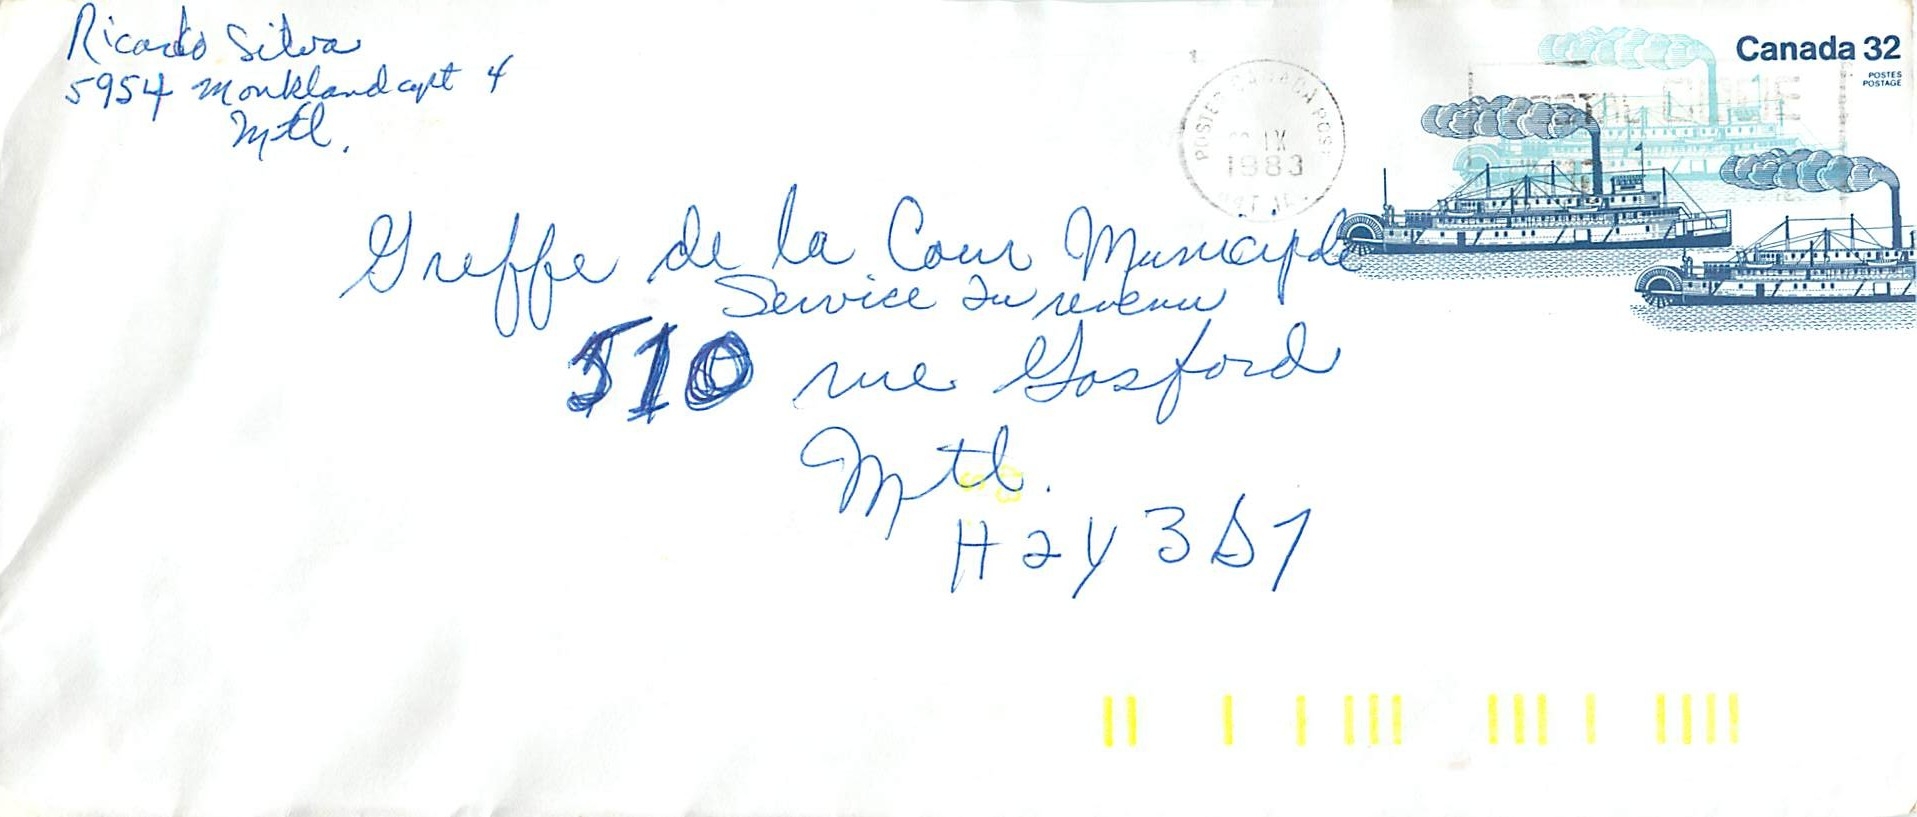 Ricardo Silva
5954 Monkland apt 4
Mtl.
Canada 32
POSTES
POSTAGE
POSTES CANADA POST
IX
1983
POSTAL CODE
Greffe de la Cour Municipale
Service du revenu
510 rue Gosford
Mtl.
H2Y 3S7